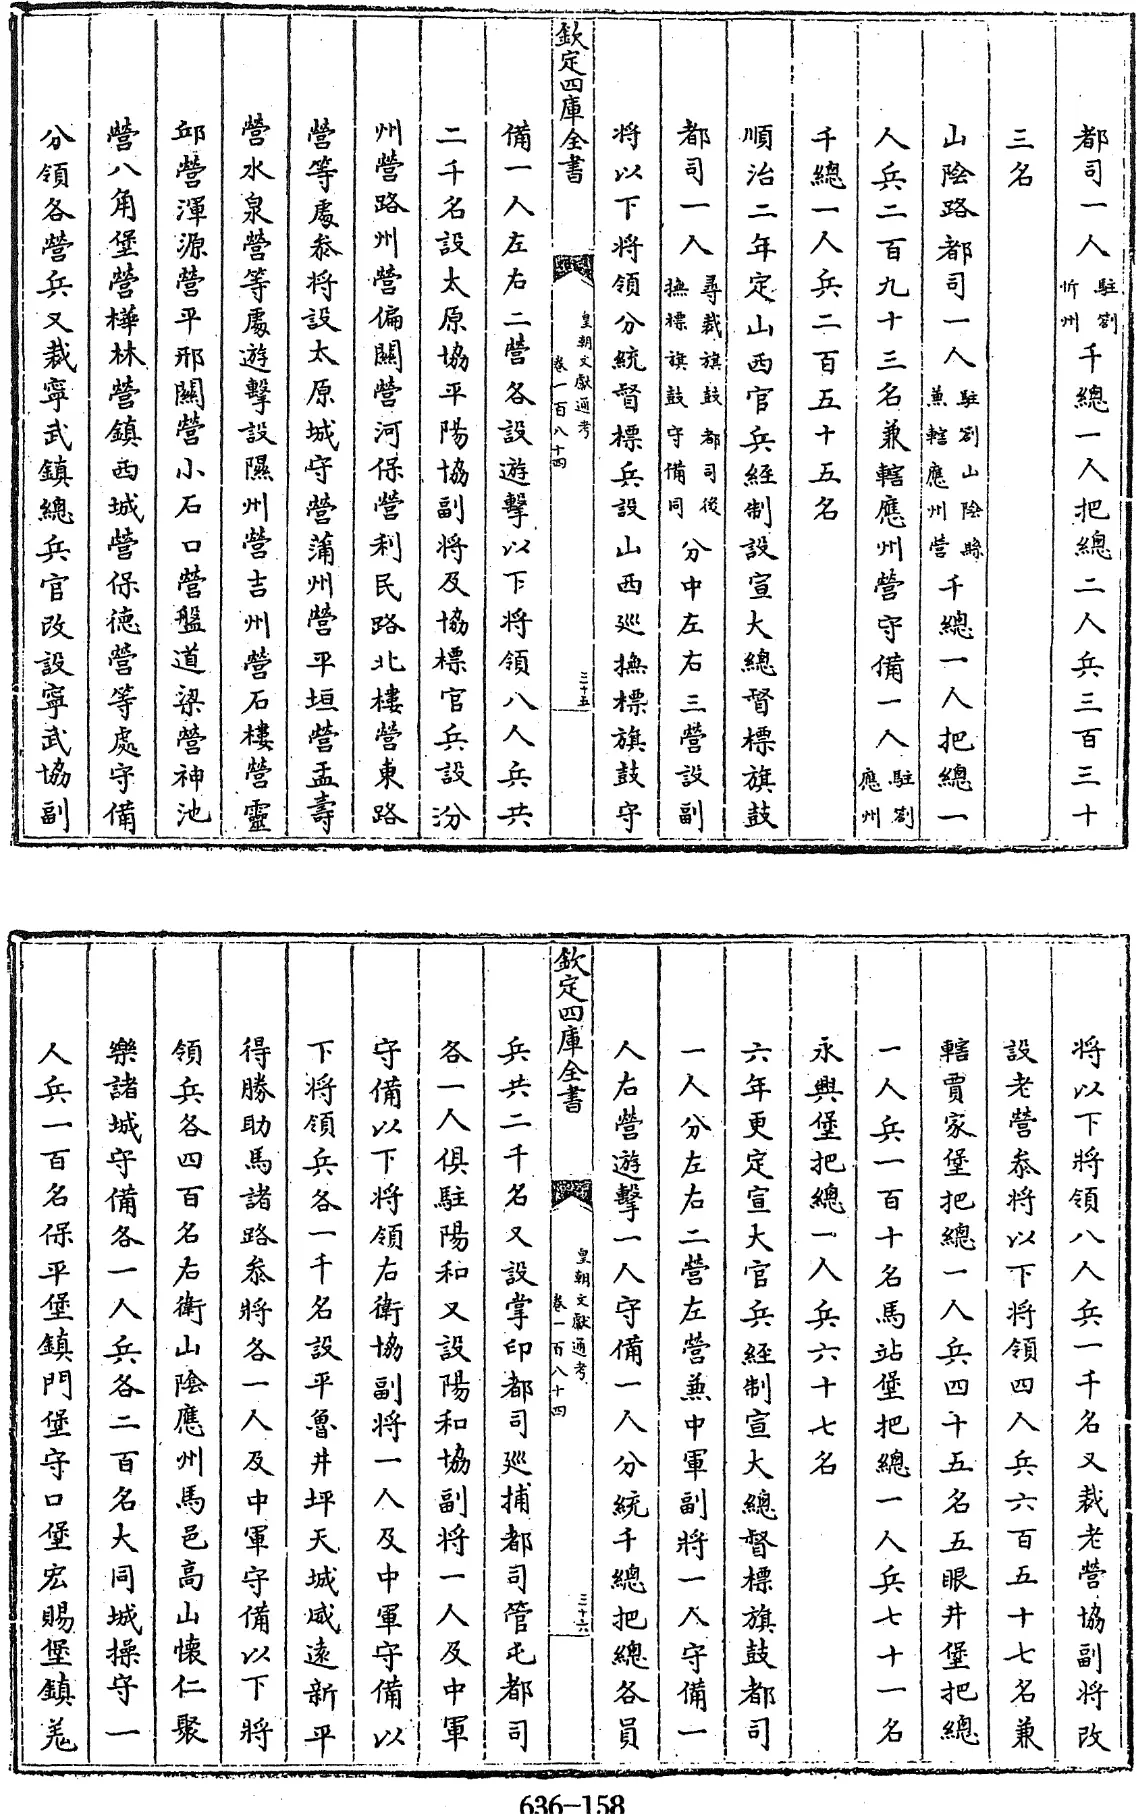 都司一人駐劄忻州千總一人把總二人兵三百三十
三名
山隂路都司一人駐劄山隂縣兼轄應州營千總一人把總一
人兵二百九十三名兼轄應州營守備一人駐劄應州
千總一人兵二百五十五名
順治二年定山西官兵經制設宣大總督標旗鼓
都司一人尋裁旗鼓都司後撫標旗鼓守備同分中左右三營設副
將以下將領分統督標兵設山西廵撫標旗鼓守
欽定四庫全書
皇朝文獻通考
卷一百八十四
三十五
備一人左右二營各設遊擊以下將領八人兵共
二千名設太原協平陽協副將及協標官兵設汾
州營路州營偏關營河保營利民路北樓營東路
營等處叅將設太原城守營蒲州營平垣營盂壽
營水泉營等處遊擊設隰州營吉州營石樓營靈
邱營渾源營平邢關營小石口營盤道梁營神池
營八角堡營樺林營鎮西城營保德營等處守備
分領各營兵又裁寧武鎮總兵官改設寧武協副
將以下將領八人兵一千名又裁老營協副將改
設老營叅將以下將領四人兵六百五十七名兼
轄賈家堡把總一人兵四十五名五眼井堡把總
一人兵一百十名馬站堡把總一人兵七十一名
永興堡把總一人兵六十七名
六年更定宣大官兵經制宣大總督標旗鼓都司
一人分左右二營左營兼中軍副將一人守備一
人右營遊擊一人守備一人分統千總把總各員
欽定四庫全書
皇朝文獻通考
卷一百八十四
三十六
兵共二千名又設掌印都司廵捕都司管屯都司
各一人俱駐陽和又設陽和協副將一人及中軍
守備以下將領右衛協副將一人及中軍守備以
下將領兵各一千名設平魯井坪天城威遠新平
得勝助馬諸路叅將各一人及中軍守備以下將
領兵各四百名右衛山隂應州馬邑高山懷仁聚
樂諸城守備各一人兵各二百名大同城操守一
人兵一百名保平堡鎮門堡守口堡宏賜堡鎮羌
636-158